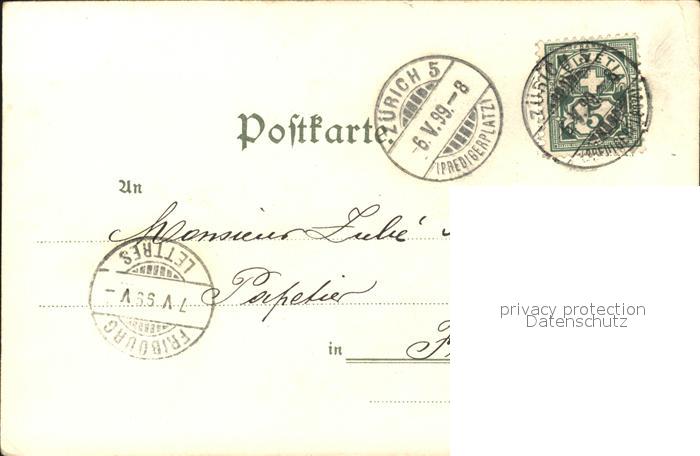 ZÜRICH 5
-6.V.99.-8
(PREDIGERPLATZ)
HELVETIA
5
Postkarte.
An
Monsieur
Papetier
in
FRIBOURG
7 V 99 V-
LETTRES
privacy protection
Datenschutz